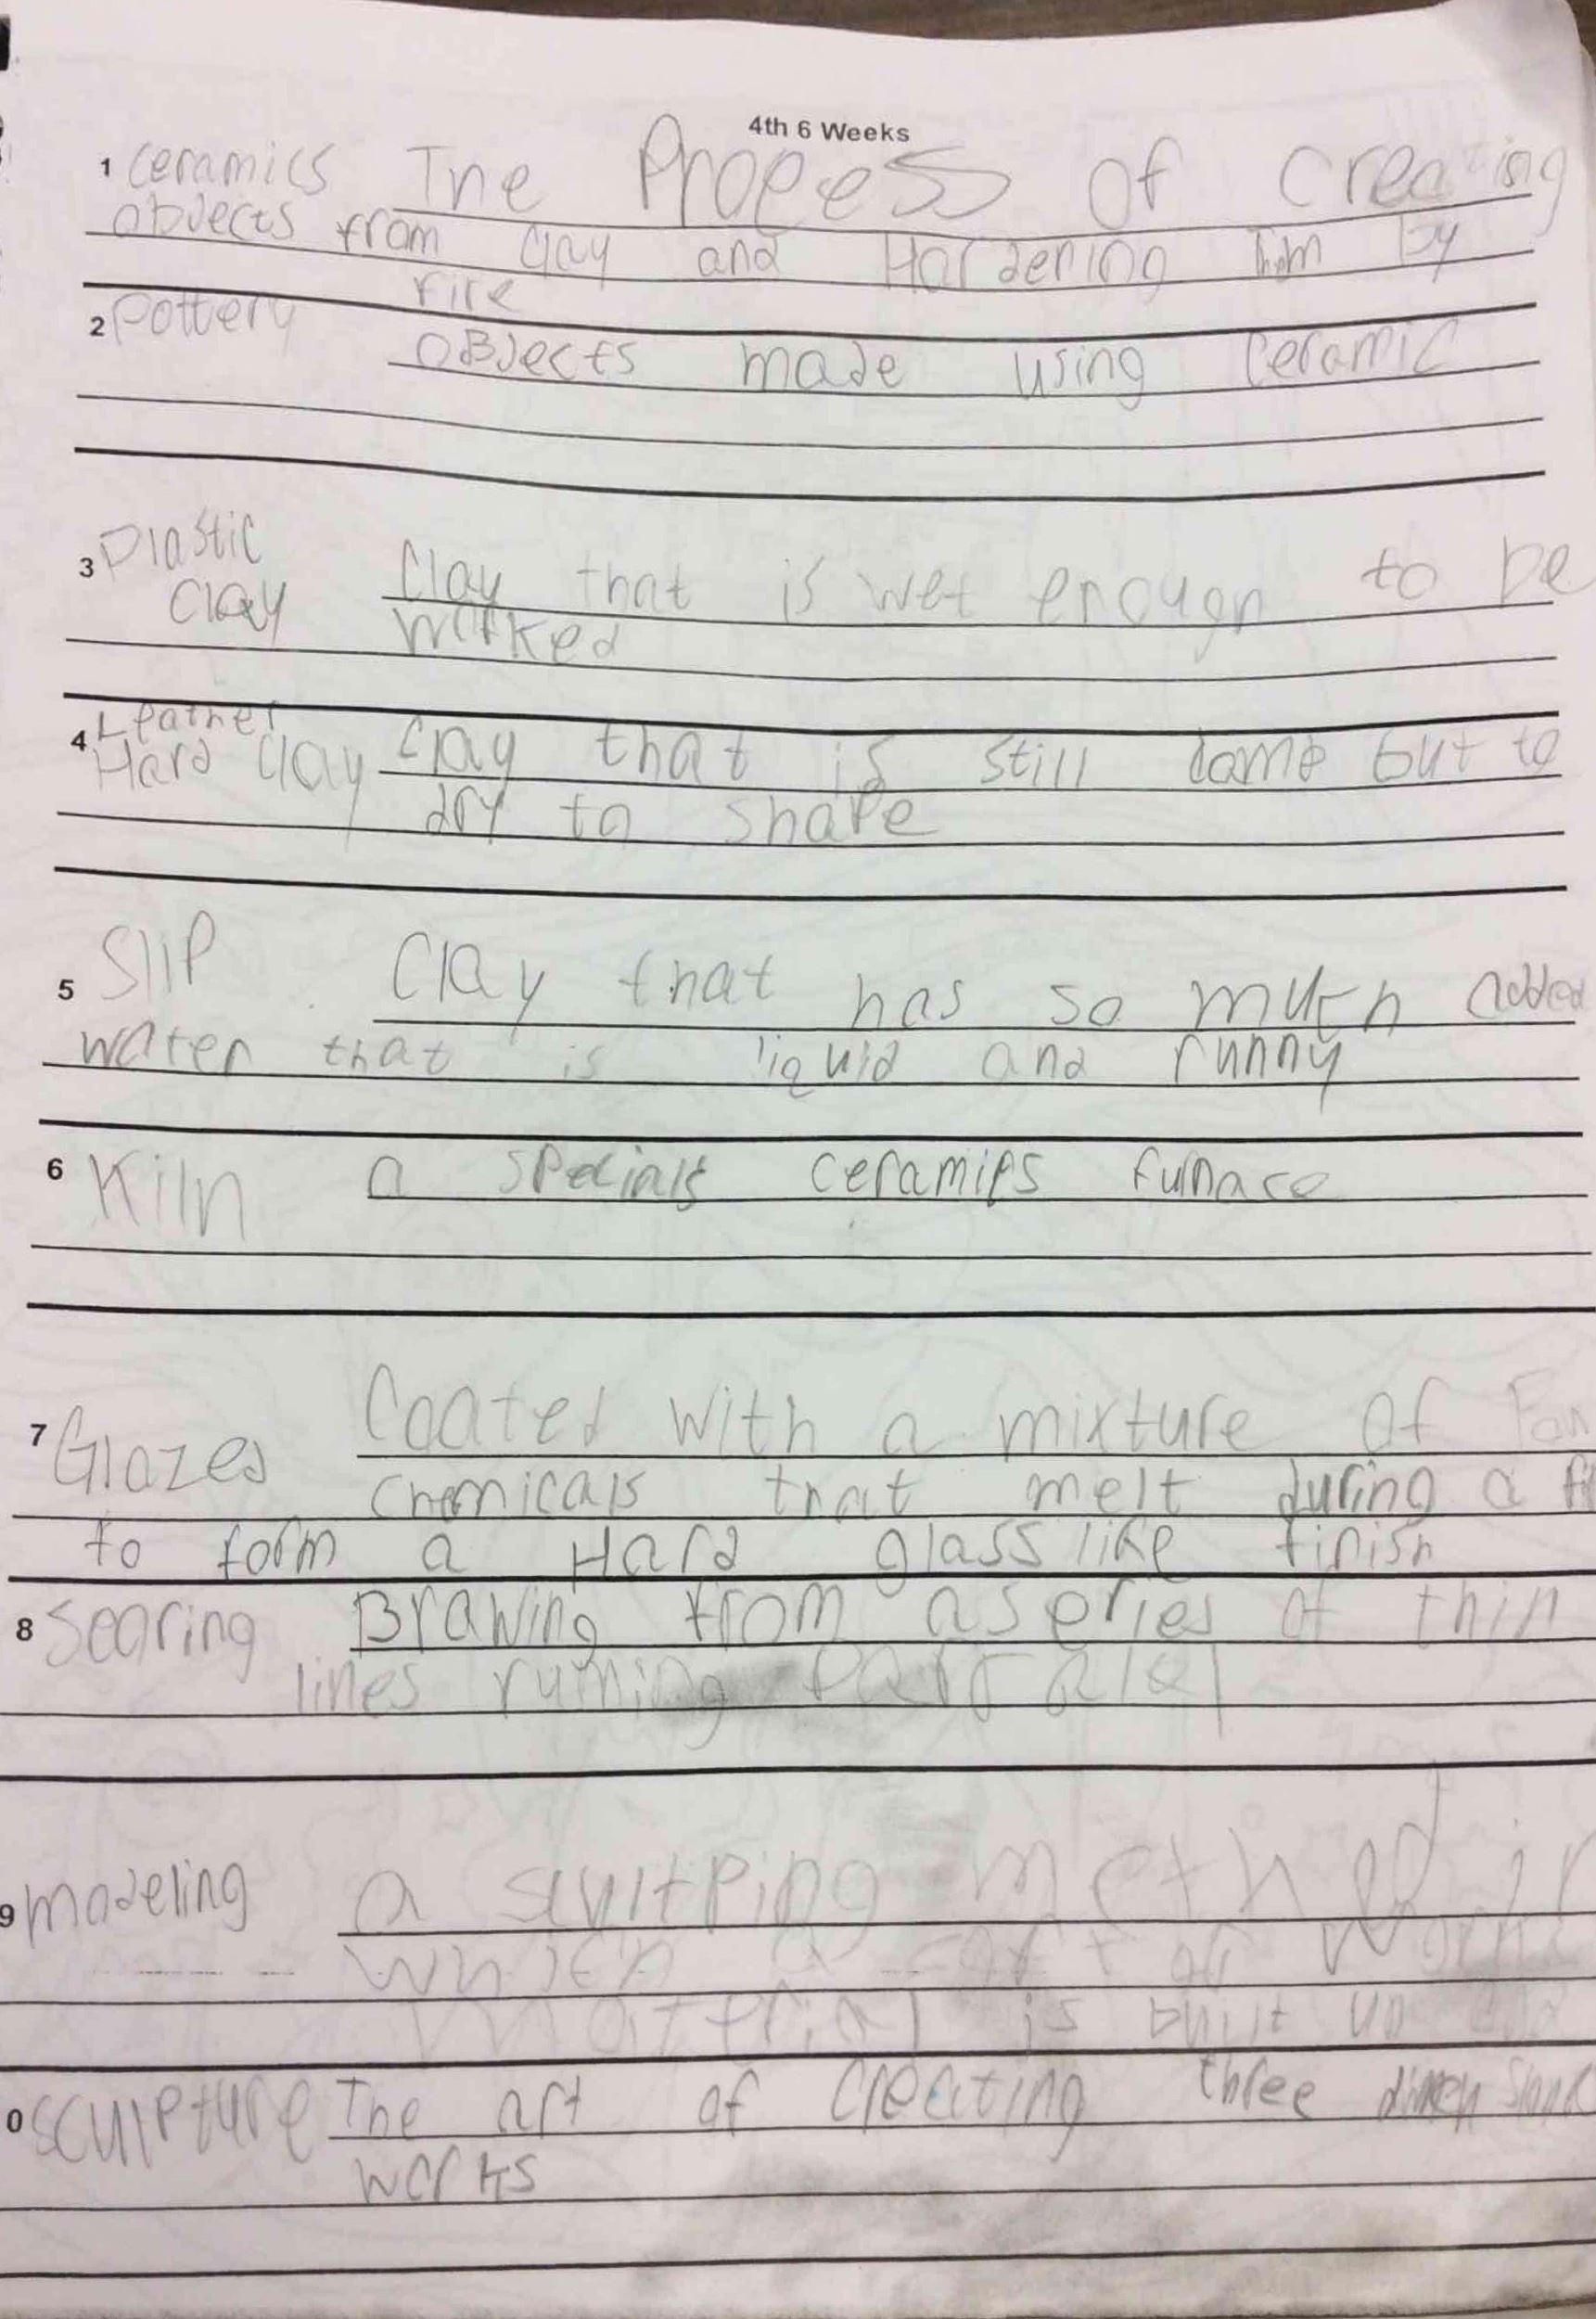 4th 6 Weeks
1 ceramics The Process of creating
objects from clay and Hardening by
fire
2 Pottery
objects made using ceramic
3 Plastic
clay
Clay that is wet enough to be
worked
4 Leather
Hard clay clay that is still damp but to
dry to shape
5 Slip Clay that has so much added
water that is liquid and runny
6 Kiln a ceramics furnace
7 Glazes Coated with a mixture of
chemicals that melt during a
to form a Hard glass like finish
8 Scoring Drawing from a series of thin
lines
9 modeling a method
which a soft or
material is built up
0 sculpture The art of creating three
works